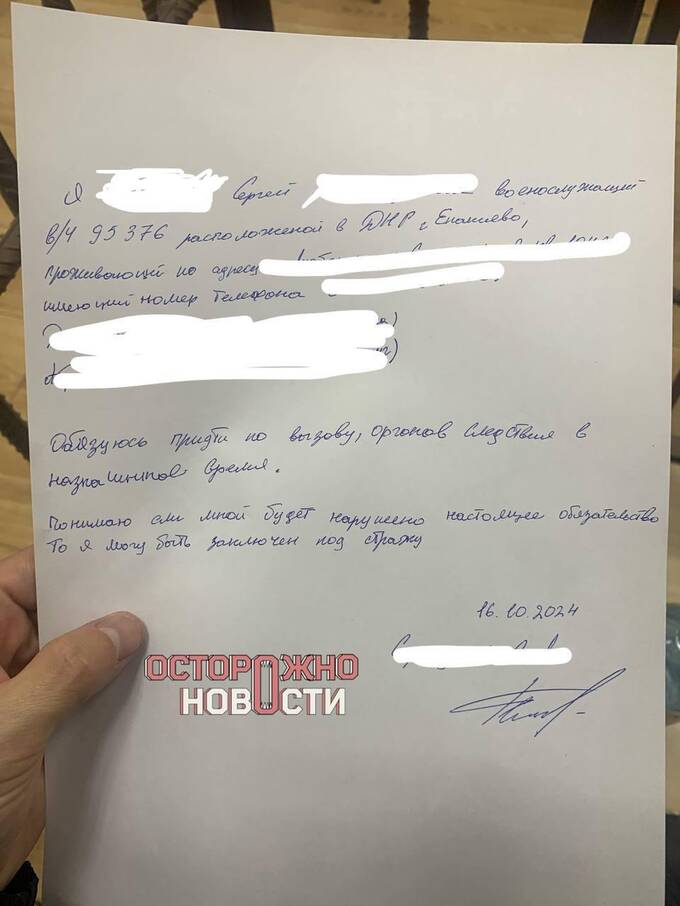 Я Сергей военослужащий
в/ч 95376 расположеной в ДНР г. Енакиево,
проживающий по адресу
имеющий номер телефона
Обязуюсь придти по вызову, органов следствия в
время.
Понимаю если мной будет нарушено настоящее обязательство
То я могу быть заключен под стражу
16.10.2024
ОСТОРОЖНО
НОВОСТИ